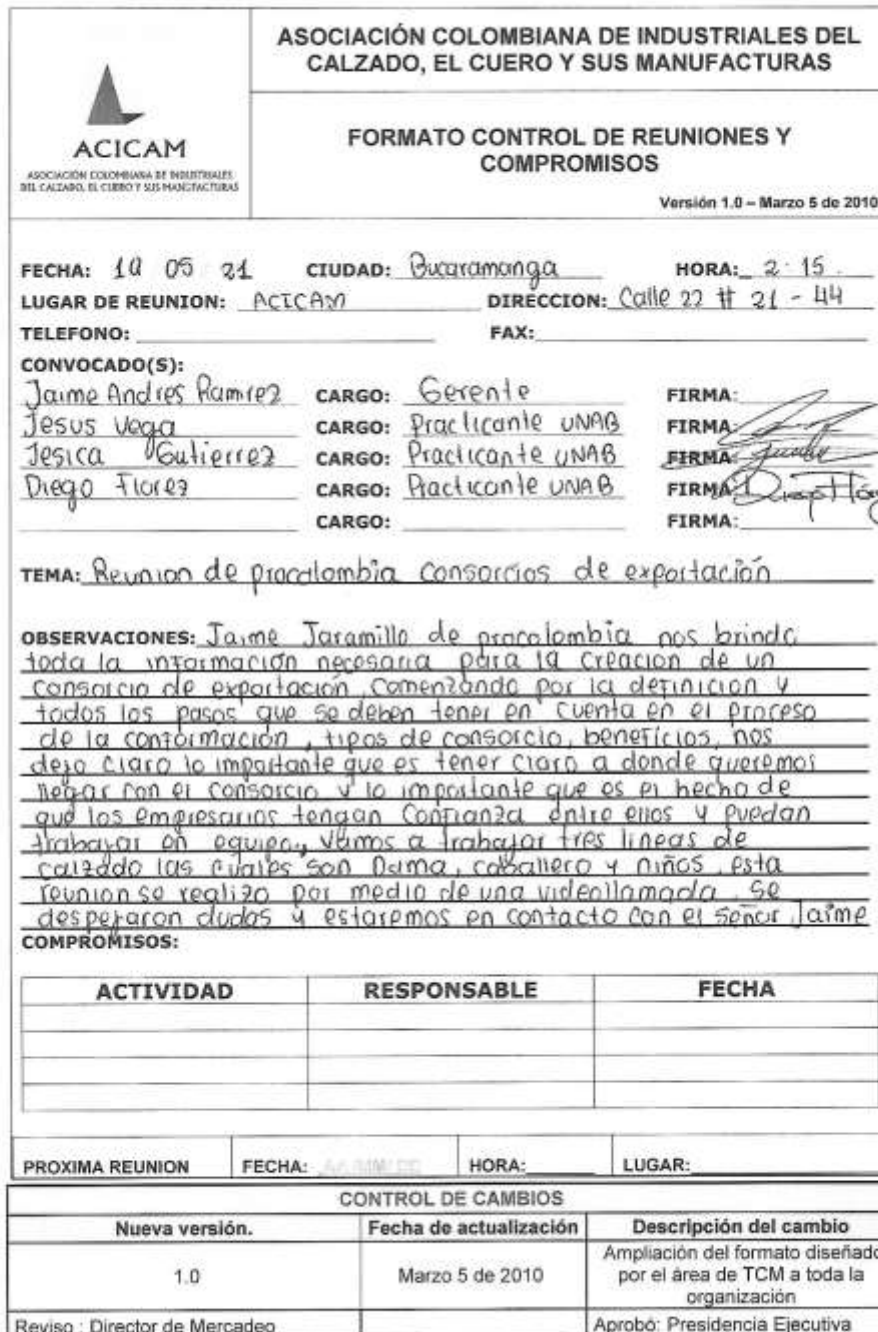 ASOCIACIÓN COLOMBIANA DE INDUSTRIALES DEL
CALZADO, EL CUERO Y SUS MANUFACTURAS
ACICAM
ASOCIACIÓN COLOMBIANA DE INDUSTRIALES
DEL CALZADO, EL CUERO Y SUS MANUFACTURAS
FORMATO CONTROL DE REUNIONES Y
COMPROMISOS
Versión 1.0 – Marzo 5 de 2010
FECHA: 05 21 CIUDAD: Bucaramanga HORA: 2:15
LUGAR DE REUNION: ACICAM DIRECCION: Calle 22 # 21 - 44
TELEFONO: FAX:
CONVOCADO(S):
Jaime Andres Ramirez CARGO: Gerente FIRMA:
Jesus Vega CARGO: Practicante UNAB FIRMA
Jesica Gutierrez CARGO: Practicante UNAB FIRMA
Diego Florez CARGO: Practicante UNAB FIRMA
CARGO: FIRMA:
TEMA: Reunion de procolombia consorcios de exportación
OBSERVACIONES: Jaime Jaramillo de procolombia nos brinda
toda la información necesaria para la creacion de un
consorcio de exportación, comenzando por la definicion y
todos los pasos que se deben tener en cuenta en el proceso
de la conformación, tipos de consorcio, beneficios, nos
dejo claro lo importante que es tener claro a donde queremos
llegar con el consorcio y lo importante que es el hecho de
que los empresarios tengan confianza entre ellos y puedan
trabajar en equipo, vamos a trabajar tres lineas de
calzado las cuales son Dama, caballero y niños, esta
reunion se realizo por medio de una videollamada, se
despejaron dudas y estaremos en contacto con el señor Jaime
COMPROMISOS:
ACTIVIDAD RESPONSABLE FECHA
PROXIMA REUNION FECHA: HORA: LUGAR:
CONTROL DE CAMBIOS
Nueva versión. Fecha de actualización Descripción del cambio
1.0 Marzo 5 de 2010 Ampliación del formato diseñado
por el área de TCM a toda la
organización
Reviso : Director de Mercadeo Aprobó: Presidencia Ejecutiva